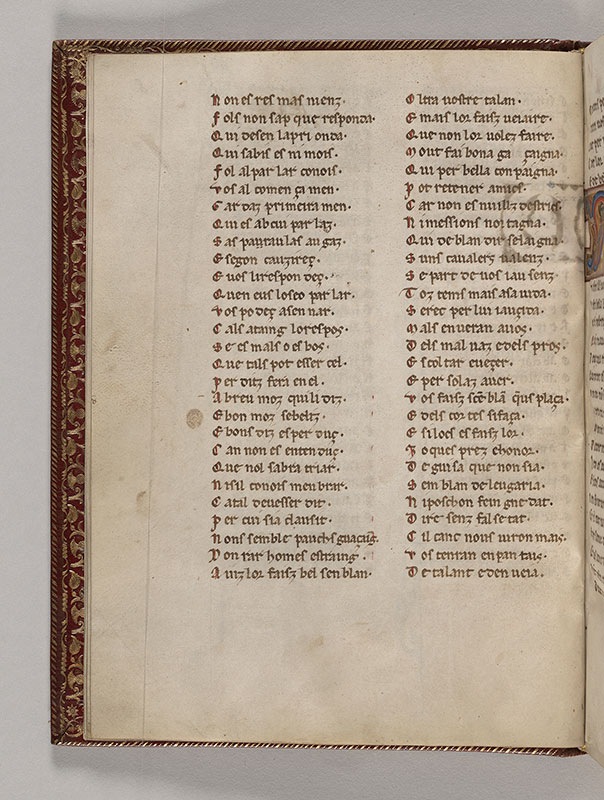 N on es res mas nienz·
F ols non sap que responda·
Q ui desen lapri onda·
Q ui sabis es ni mois·
F ol al par lar conois·
V os al comen ça men·
G ar daz primeira men·
Q ui es ab cui par laz·
S as paraulas au gaz·
E segon
E vos li respon
Q uen eus loseo par lar·
V os po dez asen nar·
C als ataing lorespos·
S e es mals o es bos·
Q ue tals pot esser cel·
P er ditz fera en el·
A breu moz qui li diz·
E bon moz
E bons diz es per duz·
C an non es enten duz·
Q ue nol sabra triar·
N i sil conois meu brar·
C a tal deu esser dit·
P er cui sia
N on semble pauchs
D on rar homes estraing·
A uiz lor faisz bel sen blan·
O ltra uostre talan·
E mais lor faisz ueiaire·
Q ue non lor uolez faire·
M out fai bona ga çaigna·
Q ui per bella con paigna·
P ot retener amics·
C ar non es nuillz destrics·
N i messions noi tagna·
Q ui de blan dir se laigna·
S uns caualers ualenz·
S e part de uos iau senz·
T oz tems mais a sa uida·
S erez per lui iauzida·
M als en ueran auos·
D els mal uaz e dels pros·
E scoltar e uezer·
E per solaz auer·
V os faisz sēblā q̄us plaça·
E dels cor tes si faça·
E si loes es faisz lor·
Z o ques prez e honor·
D e guisa que non sia·
S em blan de leugaria·
N i poschon fein gne dat·
D ire senz fal se tat·
C il canc nous uiron mais·
V os tenran en pan tais·
D e talant e den ueia·